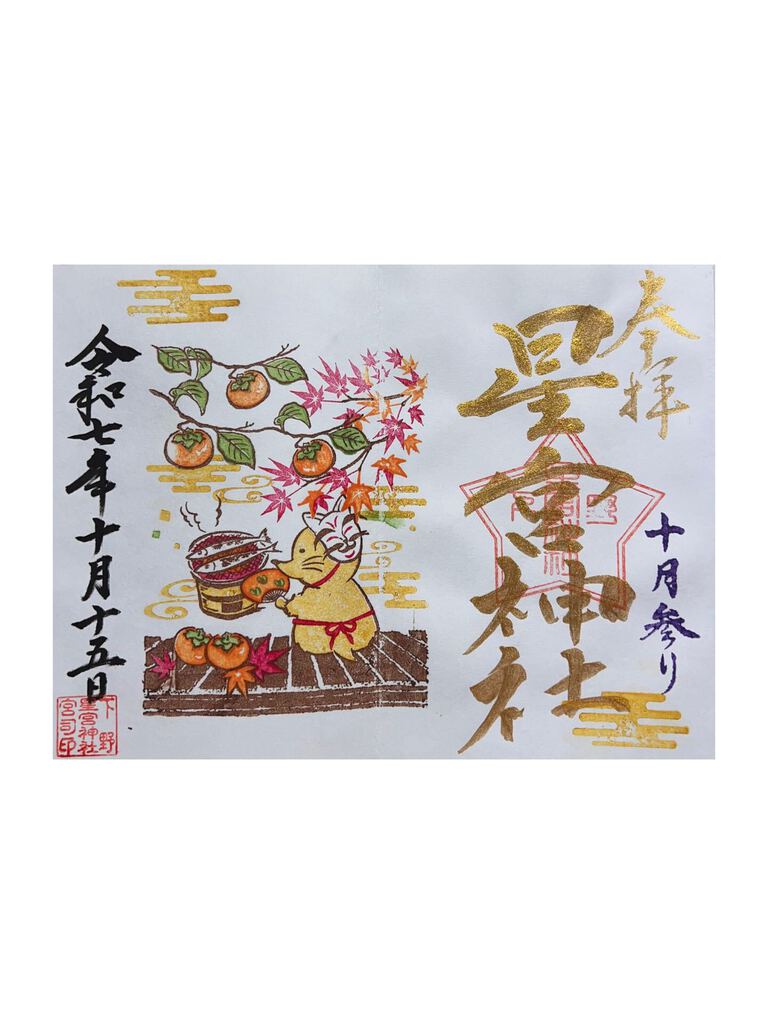 奉拝
十月参り
星宮神社
令和七年十月十五日
下野
星宮神社
宮司印